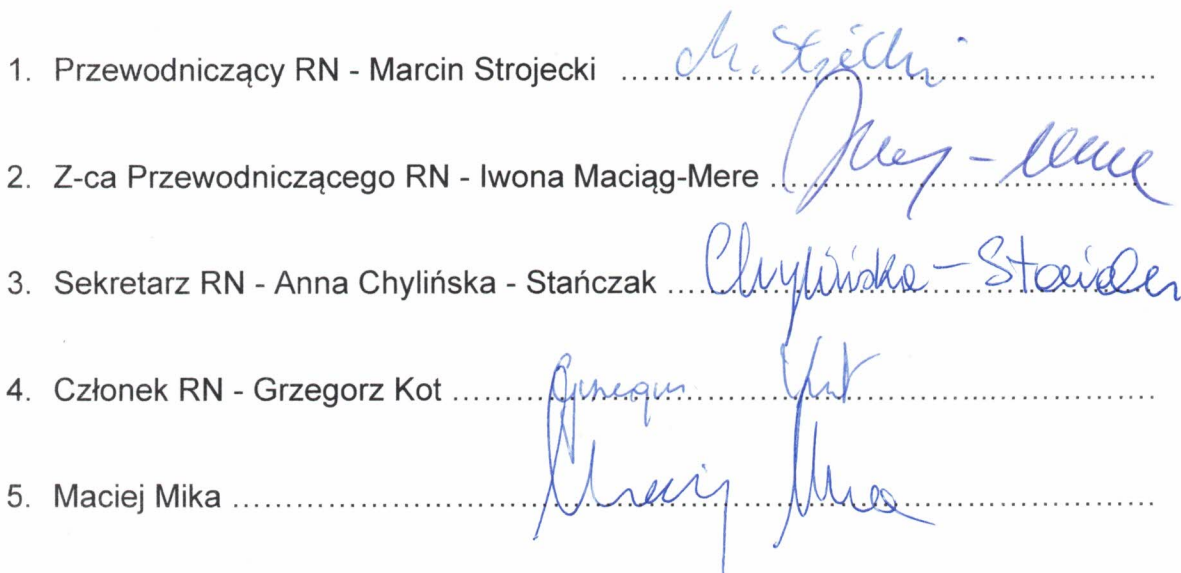 1. Przewodniczący RN - Marcin Strojecki ..... M. ...............................
2. Z-ca Przewodniczącego RN - Iwona Maciąg-Mere ...............................
3. Sekretarz RN - Anna Chylińska - Stańczak .... Chylińska - Stańczak
4. Członek RN - Grzegorz Kot ......... Grzegorz Kot ...............................
5. Maciej Mika .............................. Maciej Mika ..........................